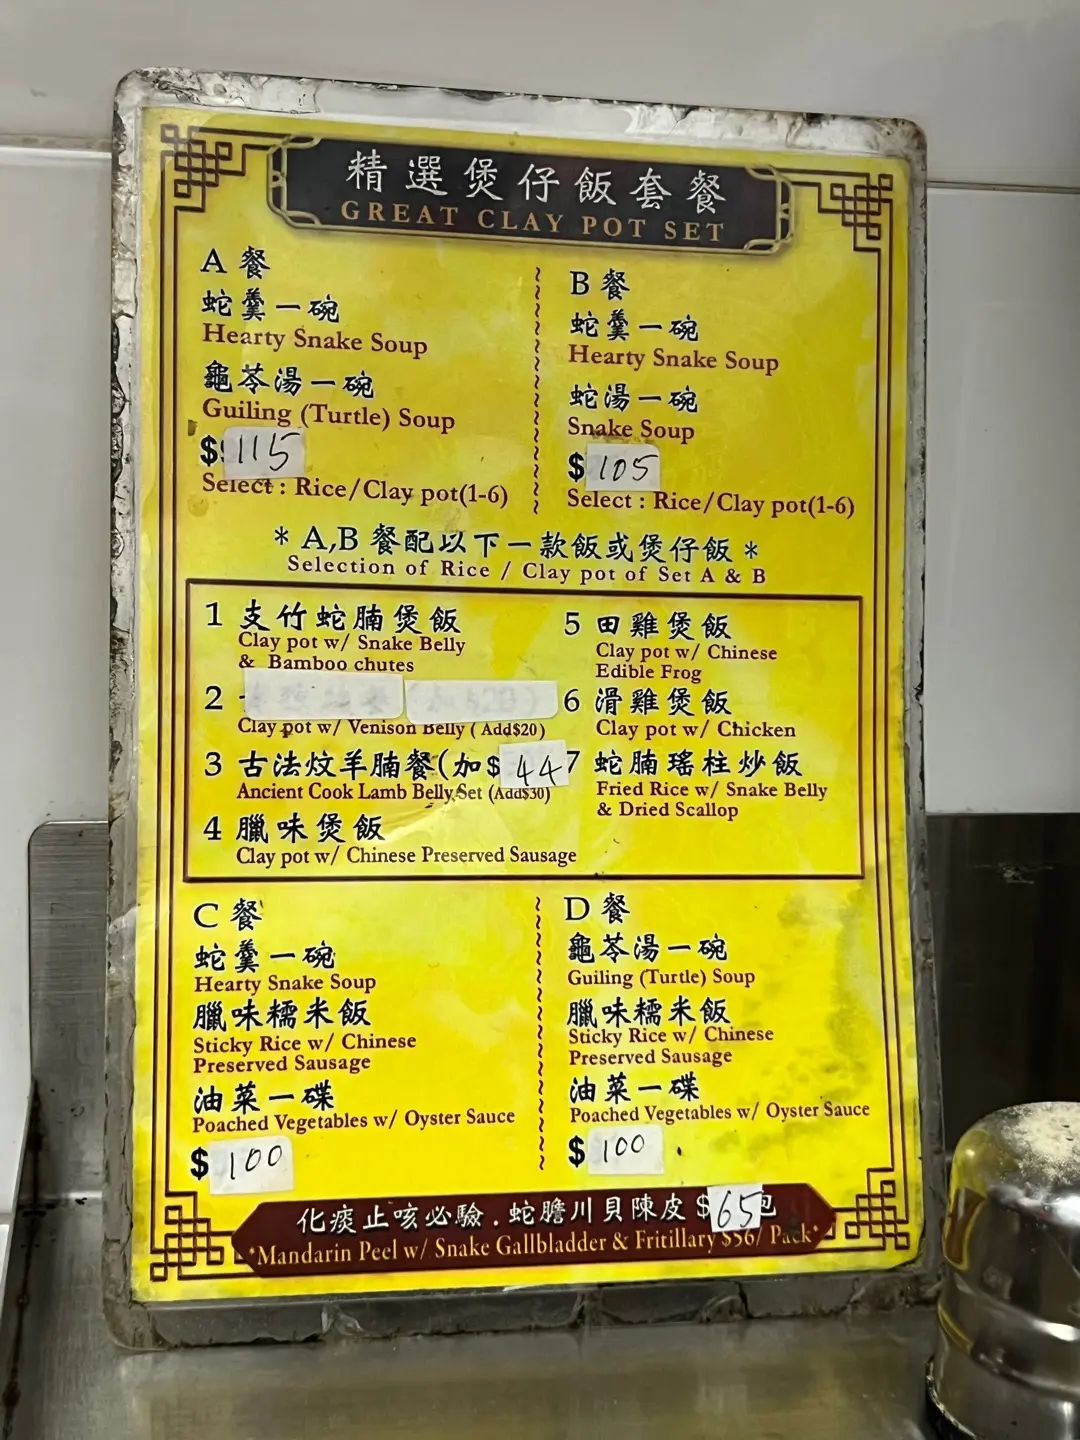 精選煲仔飯套餐
GREAT CLAY POT SET
A 餐
蛇羹一碗
Hearty Snake Soup
龜苓湯一碗
Guiling (Turtle) Soup
$ 115
Select : Rice/Clay pot(1-6)
B 餐
蛇羹一碗
Hearty Snake Soup
蛇湯一碗
Snake Soup
$ 105
Select : Rice/Clay pot(1-6)
* A,B 餐配以下一款飯或煲仔飯 *
Selection of Rice / Clay pot of Set A & B
1 支竹蛇腩煲飯
Clay pot w/ Snake Belly
& Bamboo chutes
2
Clay pot w/ Venison Belly ( Add$20)
3 古法炆羊腩餐(加$ 44
Ancient Cook Lamb Belly Set (Add$30)
4 臘味煲飯
Clay pot w/ Chinese Preserved Sausage
5 田雞煲飯
Clay pot w/ Chinese
Edible Frog
6 滑雞煲飯
Clay pot w/ Chicken
7 蛇腩瑤柱炒飯
Fried Rice w/ Snake Belly
& Dried Scallop
C 餐
蛇羹一碗
Hearty Snake Soup
臘味糯米飯
Sticky Rice w/ Chinese
Preserved Sausage
油菜一碟
Poached Vegetables w/ Oyster Sauce
$ 100
D 餐
龜苓湯一碗
Guiling (Turtle) Soup
臘味糯米飯
Sticky Rice w/ Chinese
Preserved Sausage
油菜一碟
Poached Vegetables w/ Oyster Sauce
$ 100
化痰止咳必驗.蛇膽川貝陳皮 $65包
*Mandarin Peel w/ Snake Gallbladder & Fritillary $56/ Pack*